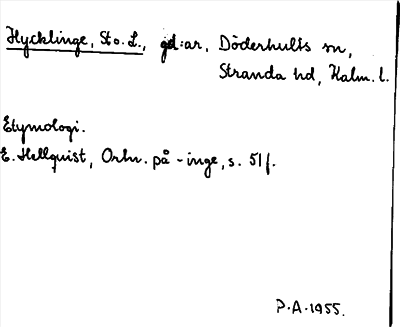 Hycklinge, St o. L., gd:ar, Döderhults sn,
Stranda hd, Kalm. l.
Etymologi.
E. Hellquist, Ortn. på -inge, s. 51f.
P.A. 1955.